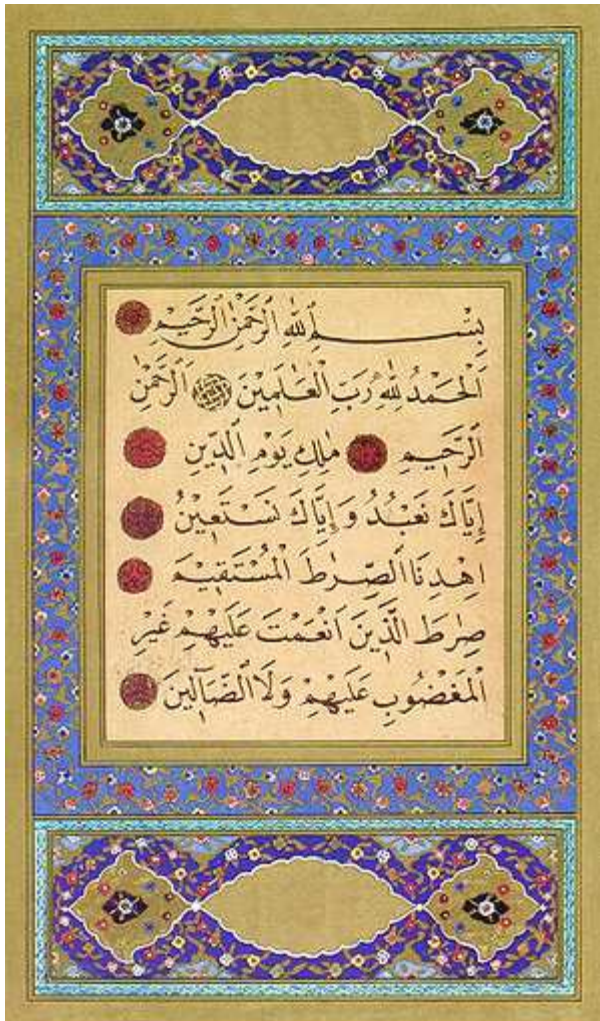 بِسْمِ ٱللّٰهِ ٱلرَّحْمٰنِ ٱلرَّحِيمِ
اَلْحَمْدُ لِلّٰهِ رَبِّ ٱلْعَالَمِينَ اَلرَّحْمٰنِ
ٱلرَّحِيمِ مٰلِكِ يَوْمِ ٱلدِّينِ
اِيَّاكَ نَعْبُدُ وَاِيَّاكَ نَسْتَعِينُ
اِهْدِنَا ٱلصِّرٰطَ ٱلْمُسْتَقِيمَ
صِرٰطَ ٱلَّذِينَ اَنْعَمْتَ عَلَيْهِمْ غَيْرِ
ٱلْمَغْضُوبِ عَلَيْهِمْ وَلَا ٱلضَّآلِّينَ